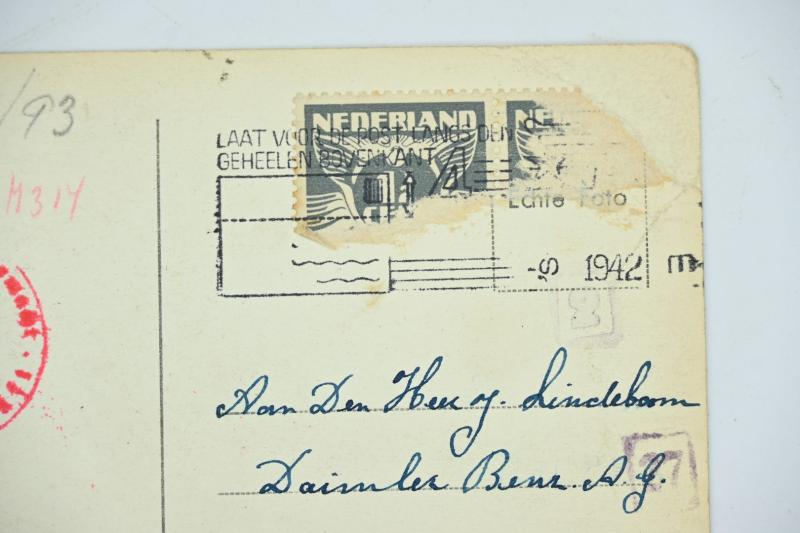 /93
M314
NEDERLAND NE
LAAT VOOR DE POST LANGS DEN
GEHEELEN BOVENKANT
Echte Foto
1942
Aan Den Heer J. Lindeboom
Daimler Benz. A.G.
27